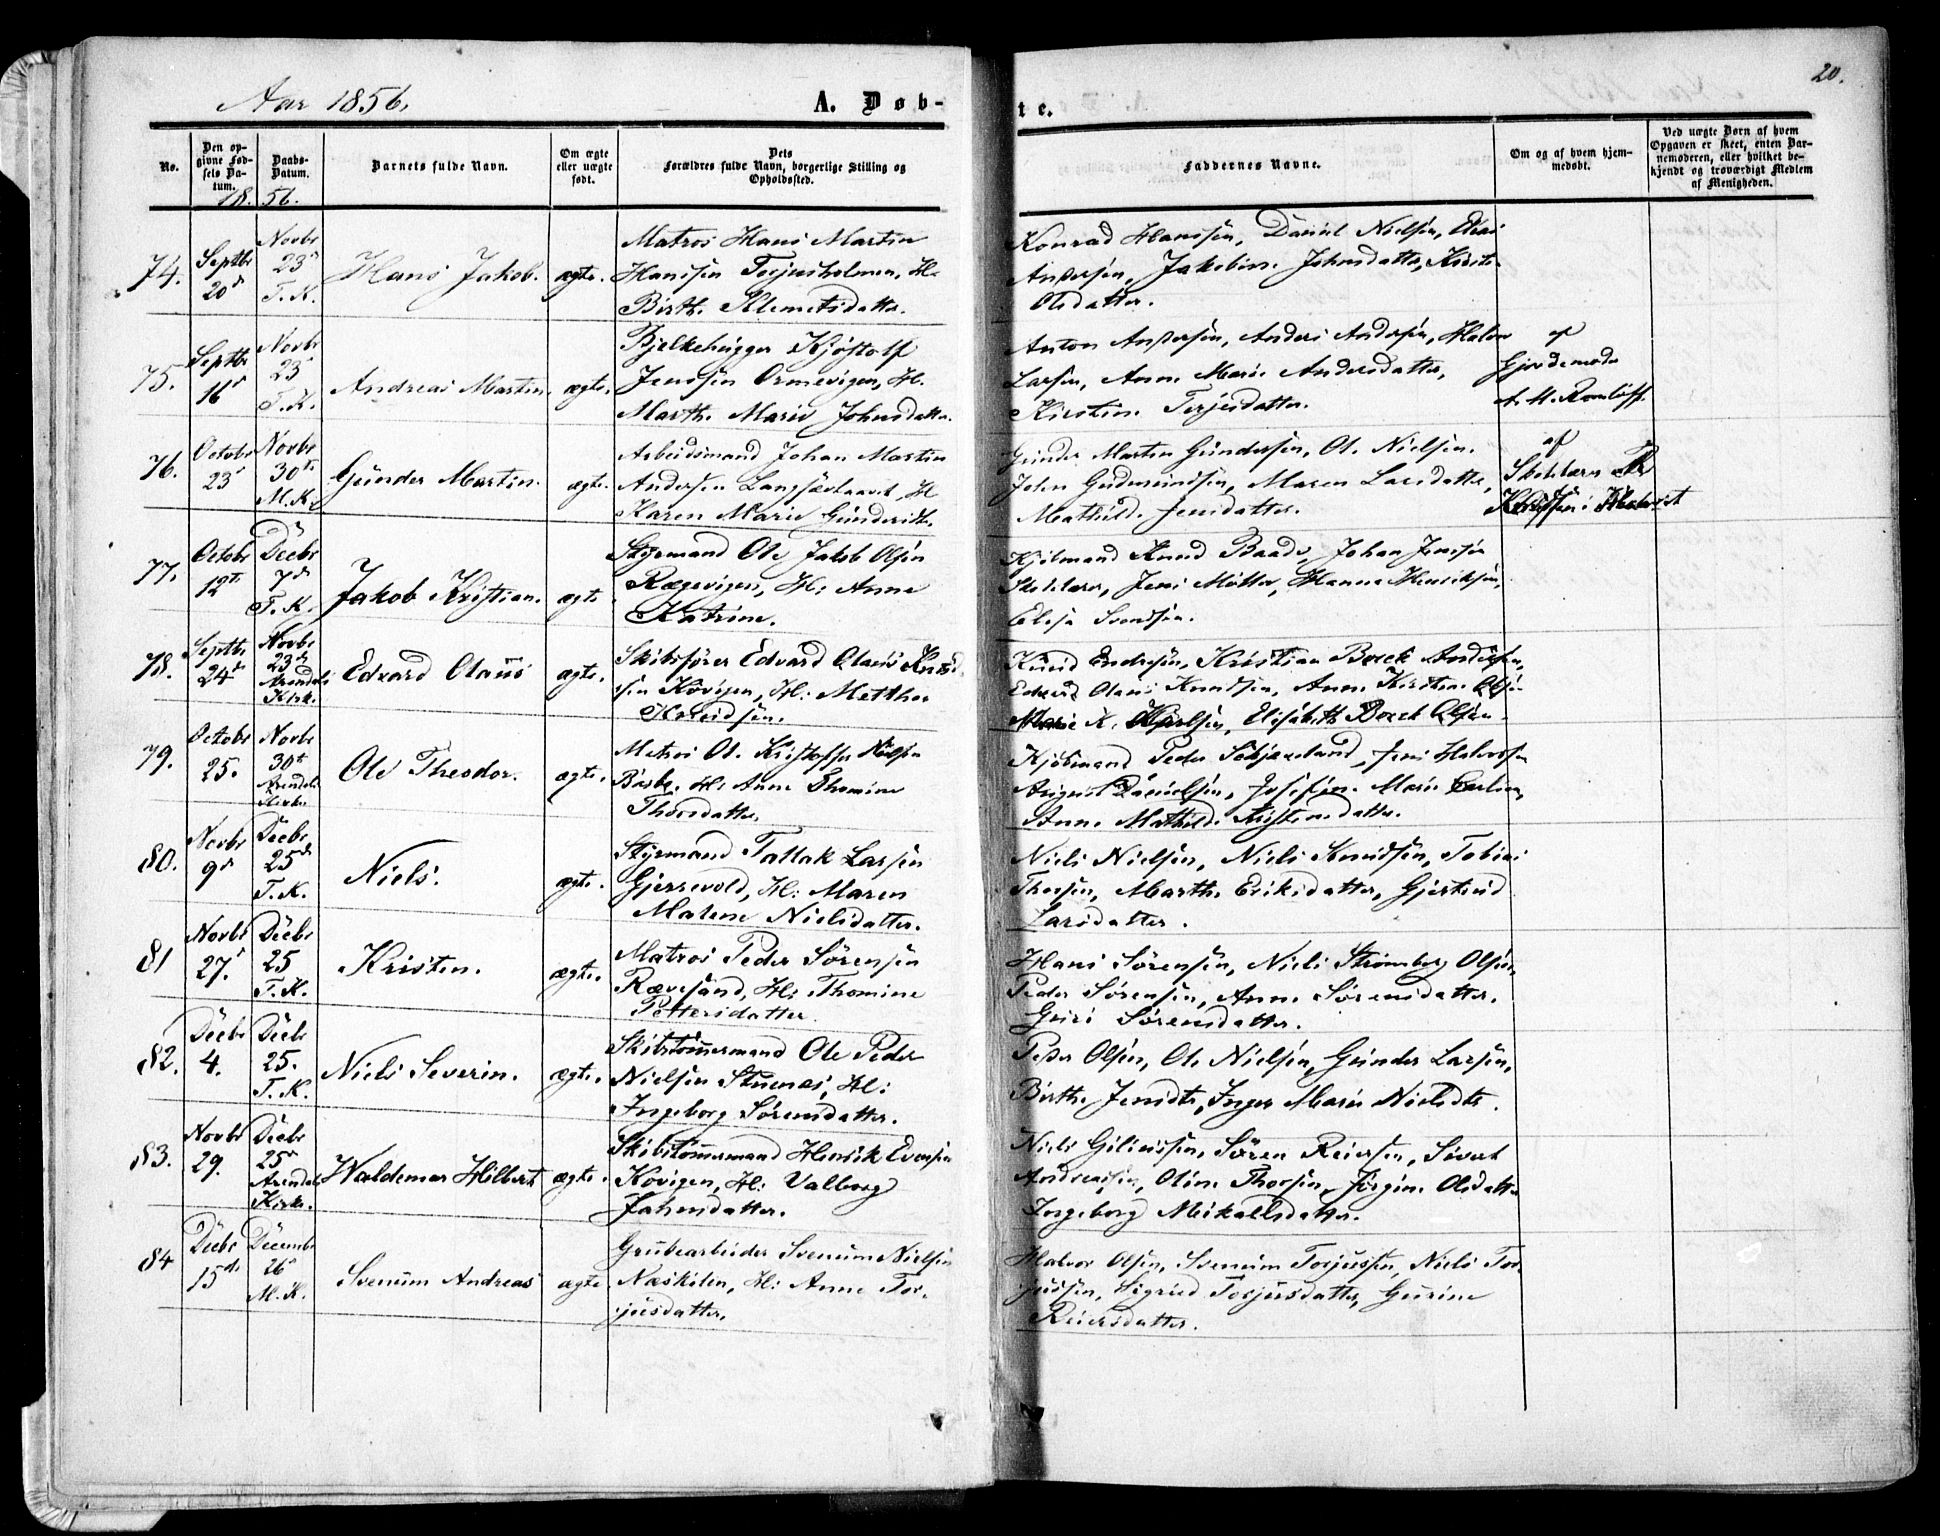 Aar 1856.
A. Døb-
te.
20.
No.
Den op-
givne Fød-
sels Da-
tum.
Daabs-
Datum.
Barnets fulde Navn.
Om ægte
eller uægte
født.
Dets
Forældres fulde Navn, borgerlige Stilling og
Opholdssted.
Faddernes Navne.
Om og af hvem hjem-
medøbt.
Ved uægte Børn af hvem
Opgaven er skeet, enten Bar-
nemoderen, eller hvilket be-
kjendt og troværdigt Medlem
af Menigheden.
18 56.
74.
Septbr
20de
Novbr
23de
T. K.
Hans Jakob.
ægte.
Matros Hans Martin
Hanssen Torjusholmen, H:
Birthe Klemetsdatter.
Konrad Hanssen, Daniel Nielsen,
Andersen, Jakobine Johnsdatter, Kirste
Olsdatter.
75.
Septbr
16de
Novbr
23de
T. K.
Andreas Martin.
ægte.
Bjelkehugger Kjøstolf
Jenssen Ormevigen, H:
Marthe Marie Johnsdatter.
Anton Andersen, Anders Andersen, Halvor
Larsen, Anne Marie Andersdatter,
Kirstine Terjesdatter.
af
Gjordemoder
A. M.
76.
Octobr
23de
Novbr
30te
M. K.
Gunder Martin.
ægte.
Arbeidsmand Johan Martin
Andersen H:
Karen Marie
Gunder Martin Gundersen, Ole Nielsen.
John Gudmundsen, Maren Larsdatter,
Mathilde Jensdatter.
af
Skolelærer
77.
Octobr
12te
Decbr
7de
T. K.
Jakob Kristian.
ægte
Styrmand Ole Jakob Olsen
Rægevigen, H: Anne
Katrine.
Kjøbmand Knud Baade, Johan Jenssen
Skolelærer, Jens Møller, Hanna Henriksen,
Elise Svendsen.
78.
Septbr
24de
Novbr
23de
Arendals
Kirke.
Edvard Olaus
ægte.
Skibsfører Edvard Olaus Knud-
sen Kovigen, H: Metthea
Knudsen.
Knud Endresen, Kristian Boeck Andersen,
Edvard Olaus Knudsen, Anne Kirstine Olsen
Marie K. Elisabeth Boeck Olsen.
79.
Octobr
25.
Novbr
30te
Arendals
Kirke
Ole Theodor.
ægte.
Matros Ole Kristoffer Nielsen
H: Anne Thomine
Thorsdatter.
Kjøbmand Peder Jens Halvorsen
August Danielsen, Josefine Marie
Anne Mathilde Kristensdatter.
80.
Novbr
9de
Decbr
25de
T. K.
Niels.
ægte.
Styrmand Tallak Larsen
Gjersvold, H: Maren
Malene Nielsdatter.
Niels Nielsen, Niels Knudsen, Tobias
Thorsen, Marthe Eriksdatter, Gjertrud
Larsdatter.
81
Novbr
27de
Decbr
25
T. K.
Kristen.
ægte.
Matros Peder Sørensen
Rævesand, H: Thomine
Pettersdatter.
Hans Sørensen, Niels Strømberg Olsen,
Peder Sørensen, Anne Sørensdatter.
Guri Sørensdatter.
82.
Decbr
4.
Decbr
25.
T. K.
Niels Severin.
ægte.
Skibstømmermand Ole Peder
Nielsen Stuenes, H:
Ingeborg Sørensdatter.
Peder Olsen, Ole Nielsen, Gunder Larsen,
Birthe Jensdtr, Inger Marie Nielsdtr.
83.
Novbr
29.
Decbr
25de
Arendals
Kirke.
Waldemar Hilbert
ægte.
Skibstømmermand Henrik Evensen
Kovigen, H: Valborg
Johnsdatter.
Niels Søren Reiersen, Sivert
Andreassen, Oline Thorsen, Jørgine Olsdatter
Ingeborg Mikaelsdatter.
84
Decbr
15de
Decembr
26de
M. K.
Svenum Andreas
ægte.
Grubearbeider Svenum Nielsen
Næskilen, H: Anne Tor-
jusdatter.
Halvor Olsen, Svenum Torjussen, Niels Tor-
jussen, Sigrid Torjusdatter, Gurine
Reiersdatter.